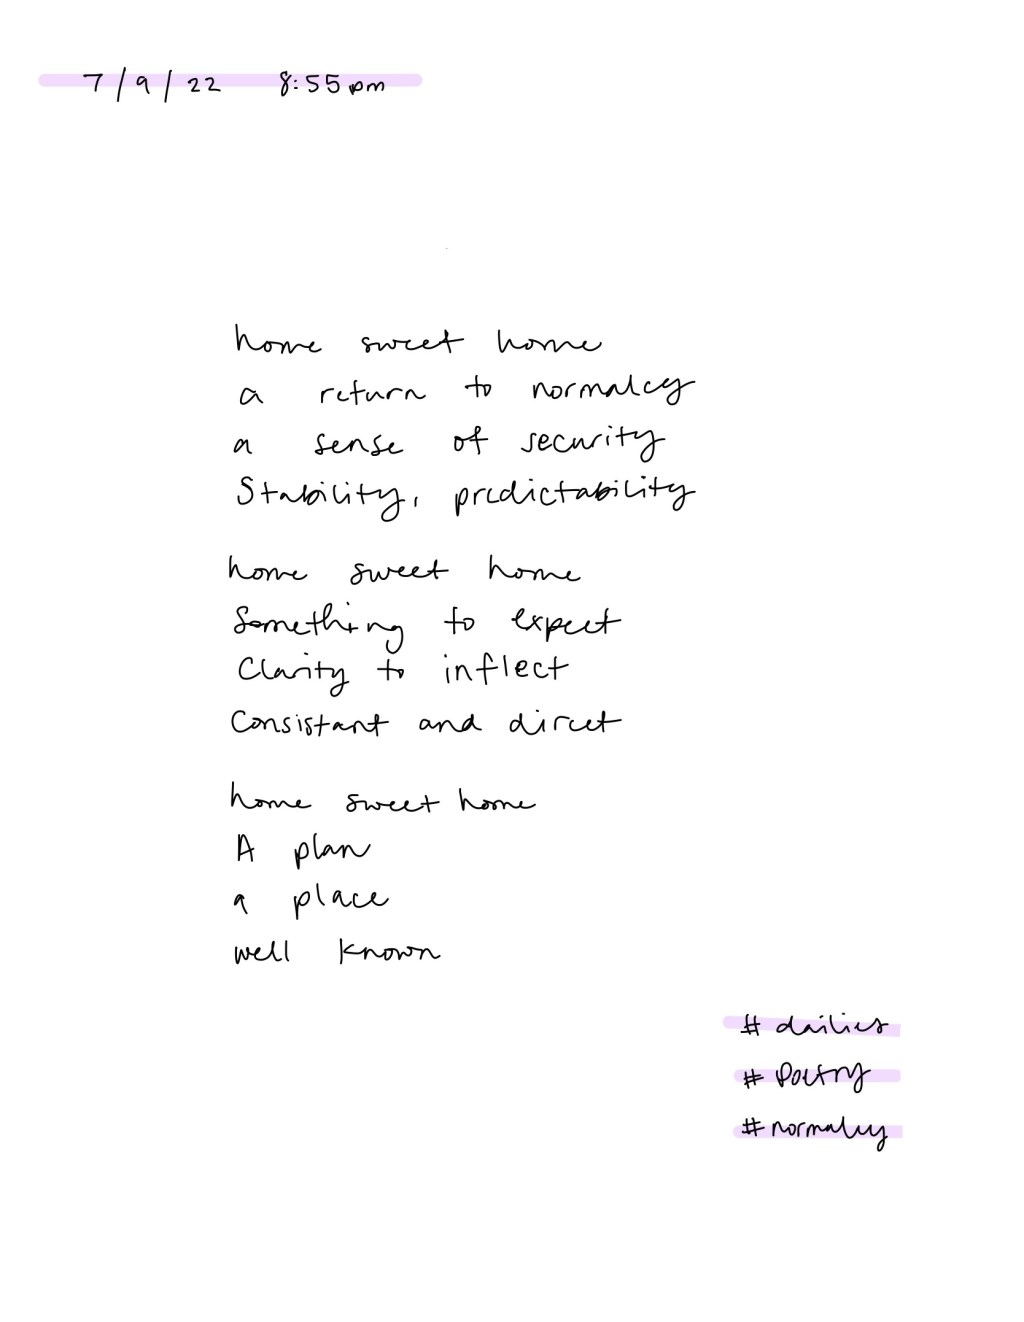 7/9/22 8:55pm
home sweet home
a return to normalcy
a sense of security
Stability, predictability
home sweet home
Something to expect
Clarity to inflect
Consistant and direct
home sweet home
A plan
a place
well known
# dailies
# Poetry
# normalcy